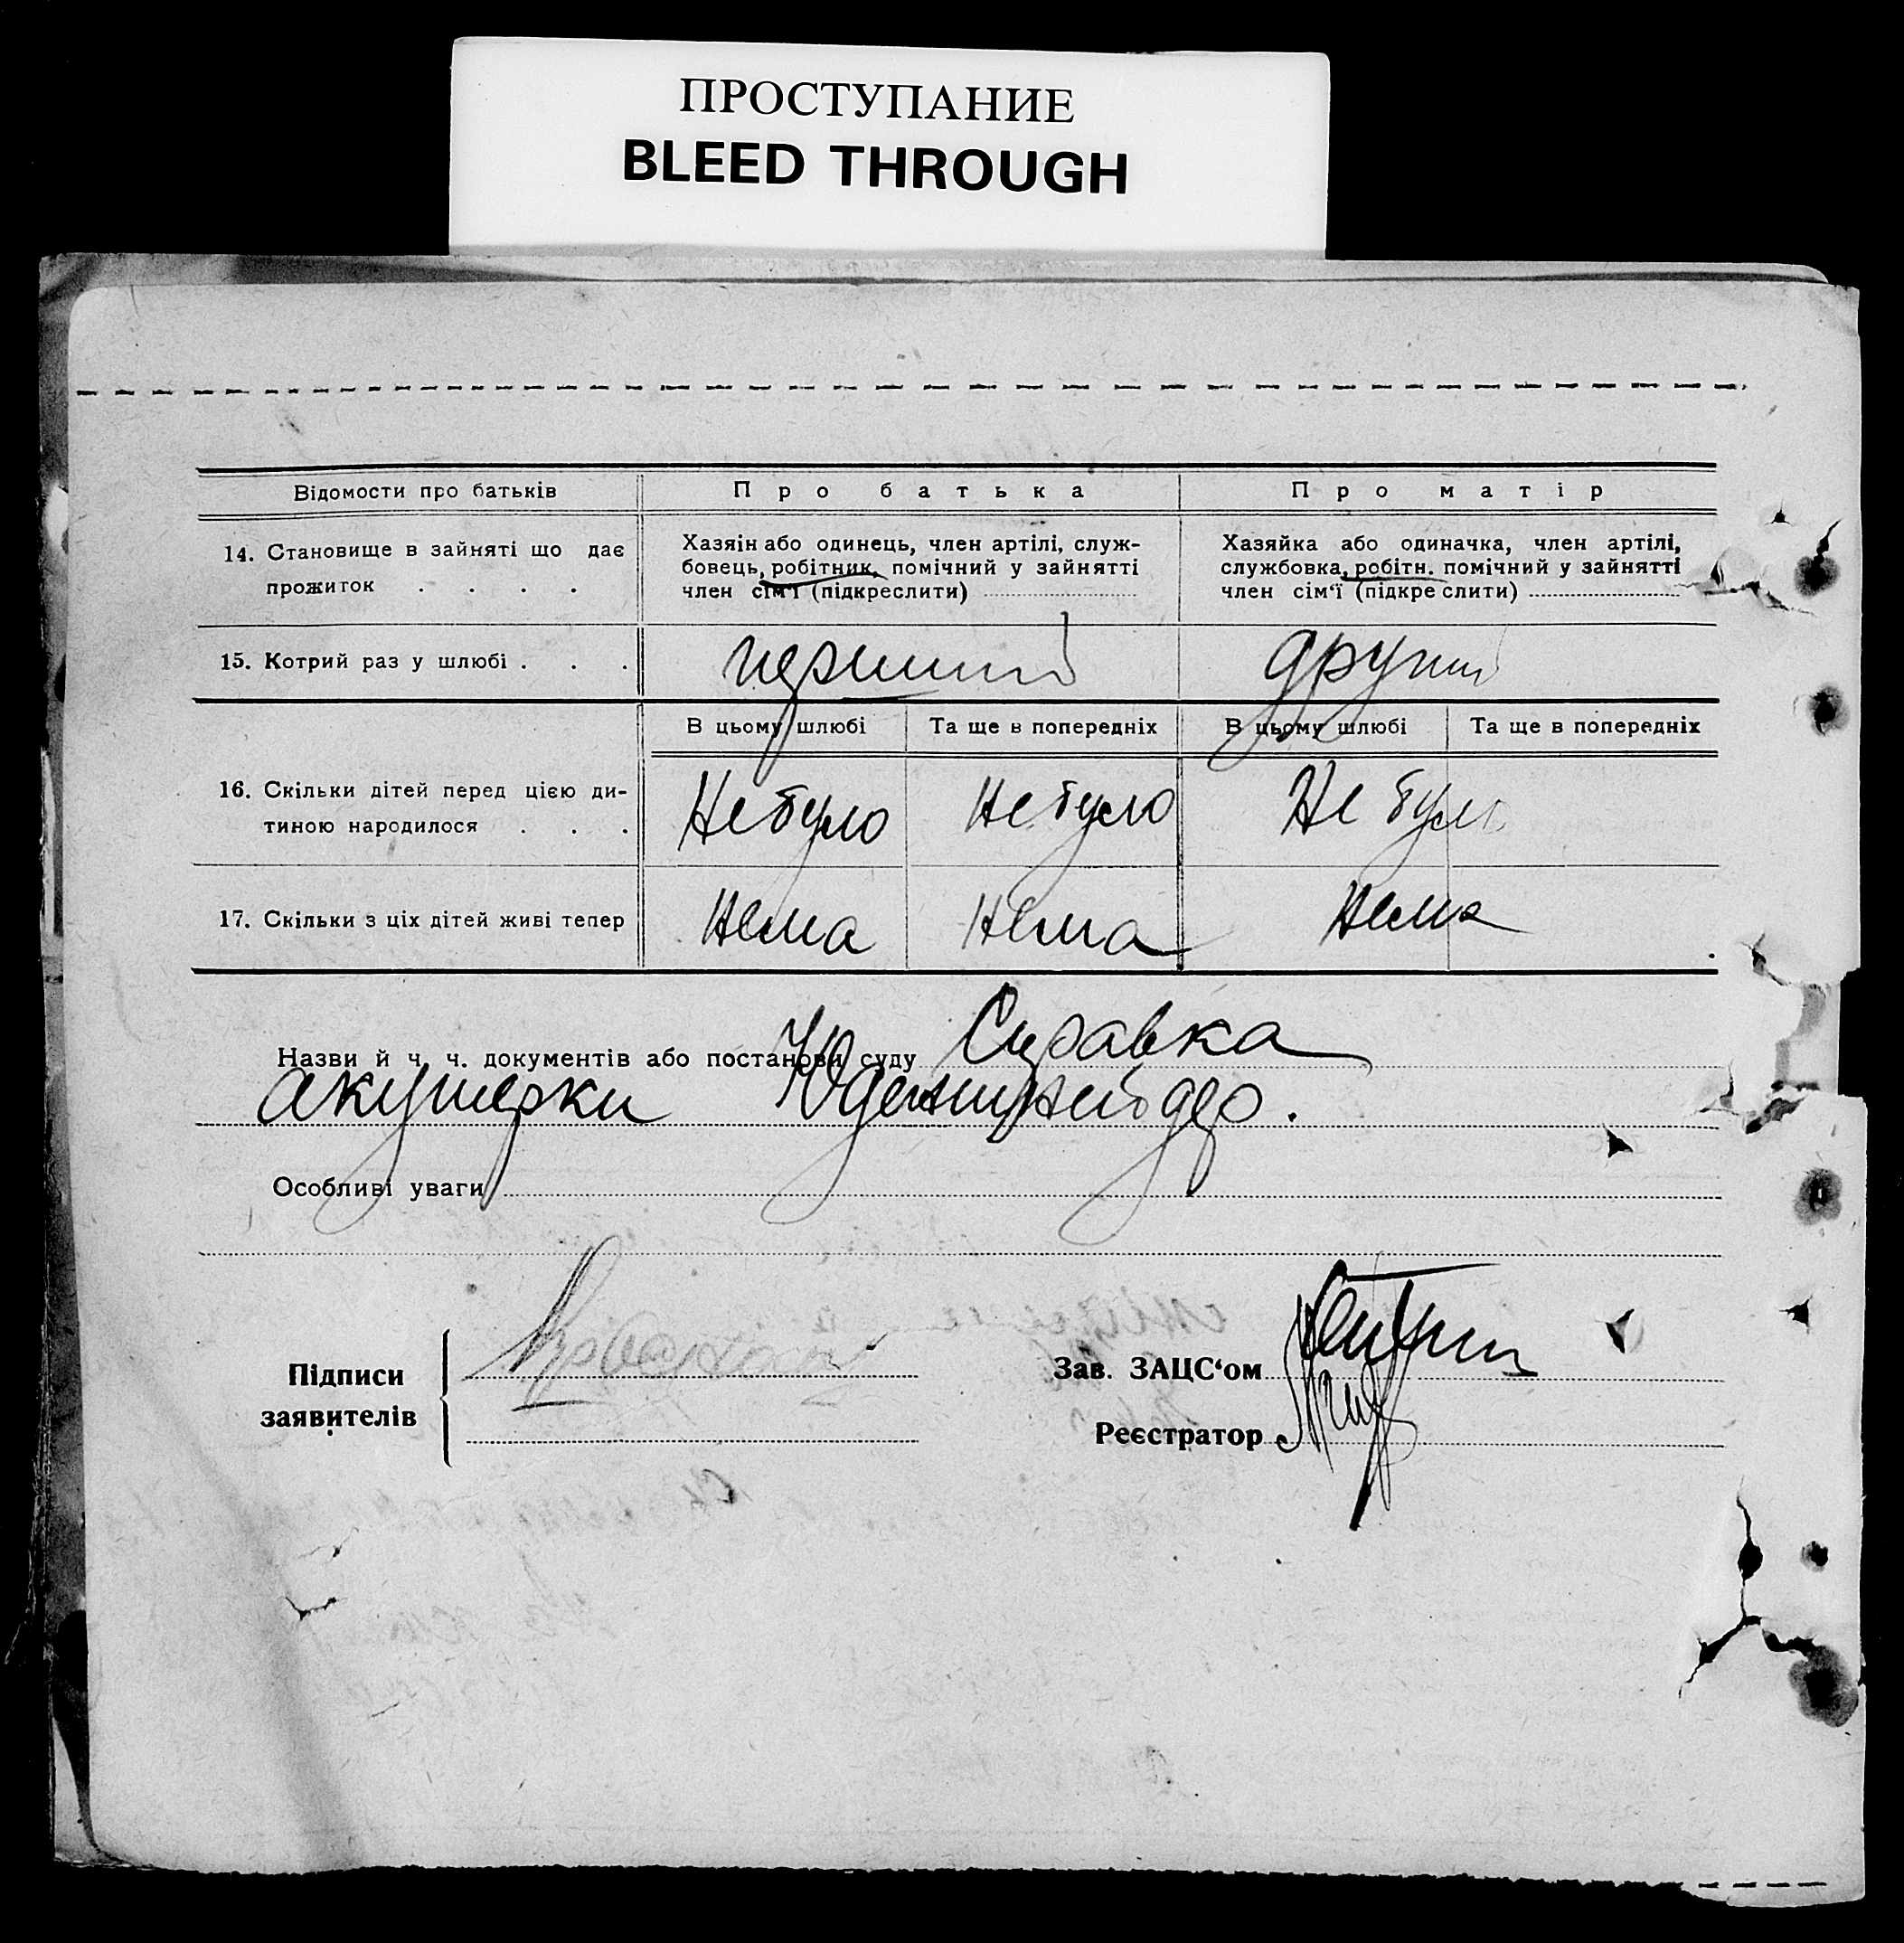 ПРОСТУПАНИЕ
BLEED THROUGH
Відомости про батьків
Про батька
Про матір
14. Становище в зайняті що дає
прожиток . . . .
Хазяін або одинець, член артілі, служ-
бовець, робітник, помічний у зайнятті
член сім'ї (підкреслити)
Хазяйка або одиначка, член артілі,
службовка, робітн. помічний у зайнятті
член сім'ї (підкреслити)
15. Котрий раз у шлюбі . . .
перший
другий
В цьому шлюбі
Та ще в попередніх
В цьому шлюбі
Та ще в попередніх
16. Скільки дітей перед цією ди-
тиною народилося . . .
Не було
Не було
Не було
17. Скільки з ціх дітей живі тепер
Нема
Нема
Нема
Назви й ч. ч. документів або постанови суду Справка
акушерки
Особливі уваги
Підписи
заявителів
Зав. ЗАЦС'ом
Реєстратор